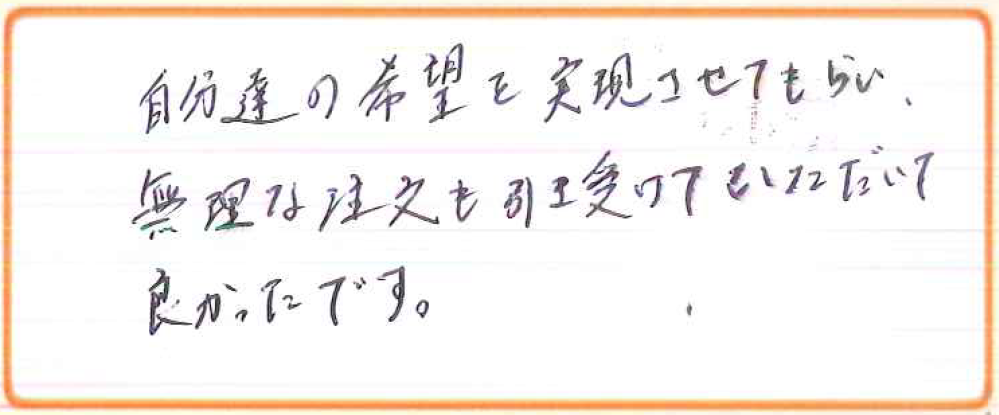 自分達の希望を実現させてもらい、
無理な注文も引き受けていただいて
良かったです。